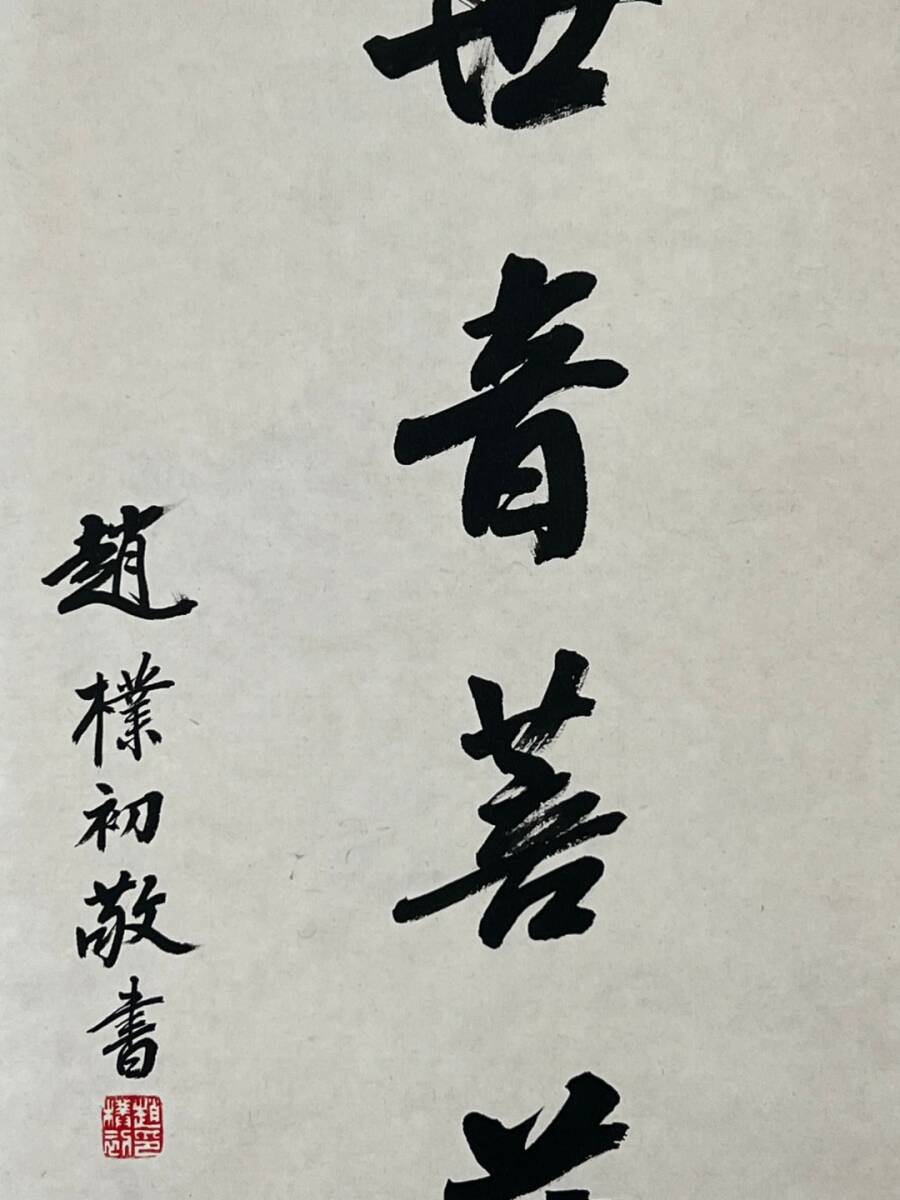 世音菩
趙樸初敬書
趙樸初印